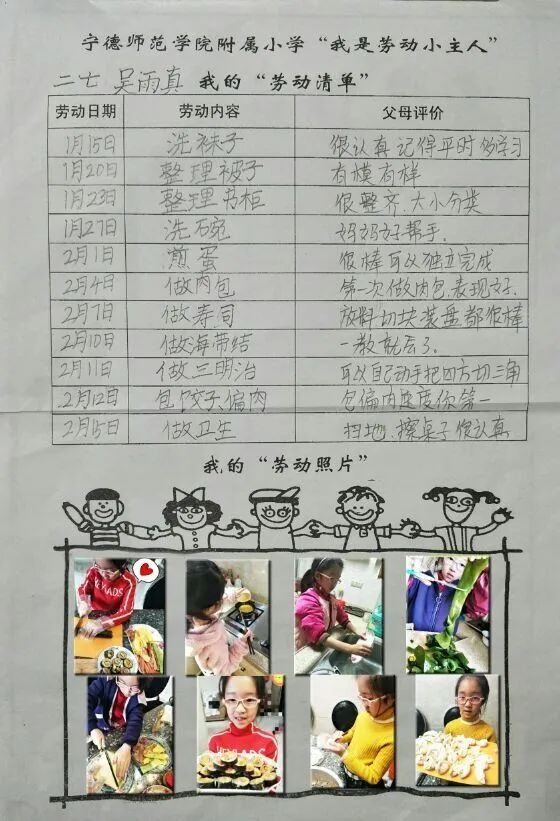 宁德师范学院附属小学“我是劳动小主人”
二七 吴雨真 我的“劳动清单”
劳动日期 劳动内容 父母评价
1月15日 洗袜子 很认真 记得平时多学习
1月20日 整理被子 有模有样
1月23日 整理书柜 很整齐、大小分类
1月27日 洗碗 妈妈好帮手.
2月1日 煎蛋 很棒可以独立完成
2月4日 做肉包 第一次做肉包.表现好.
2月7日 做寿司 放料切块装盘都很棒
2月10日 做海带结 一教就会了.
2月11日 做三明治 可以自己动手把四方切三角
2月12日 包饺子、偏肉 包偏肉速度你第一
2月15日 做卫生 扫地、擦桌子很认真
我的“劳动照片”